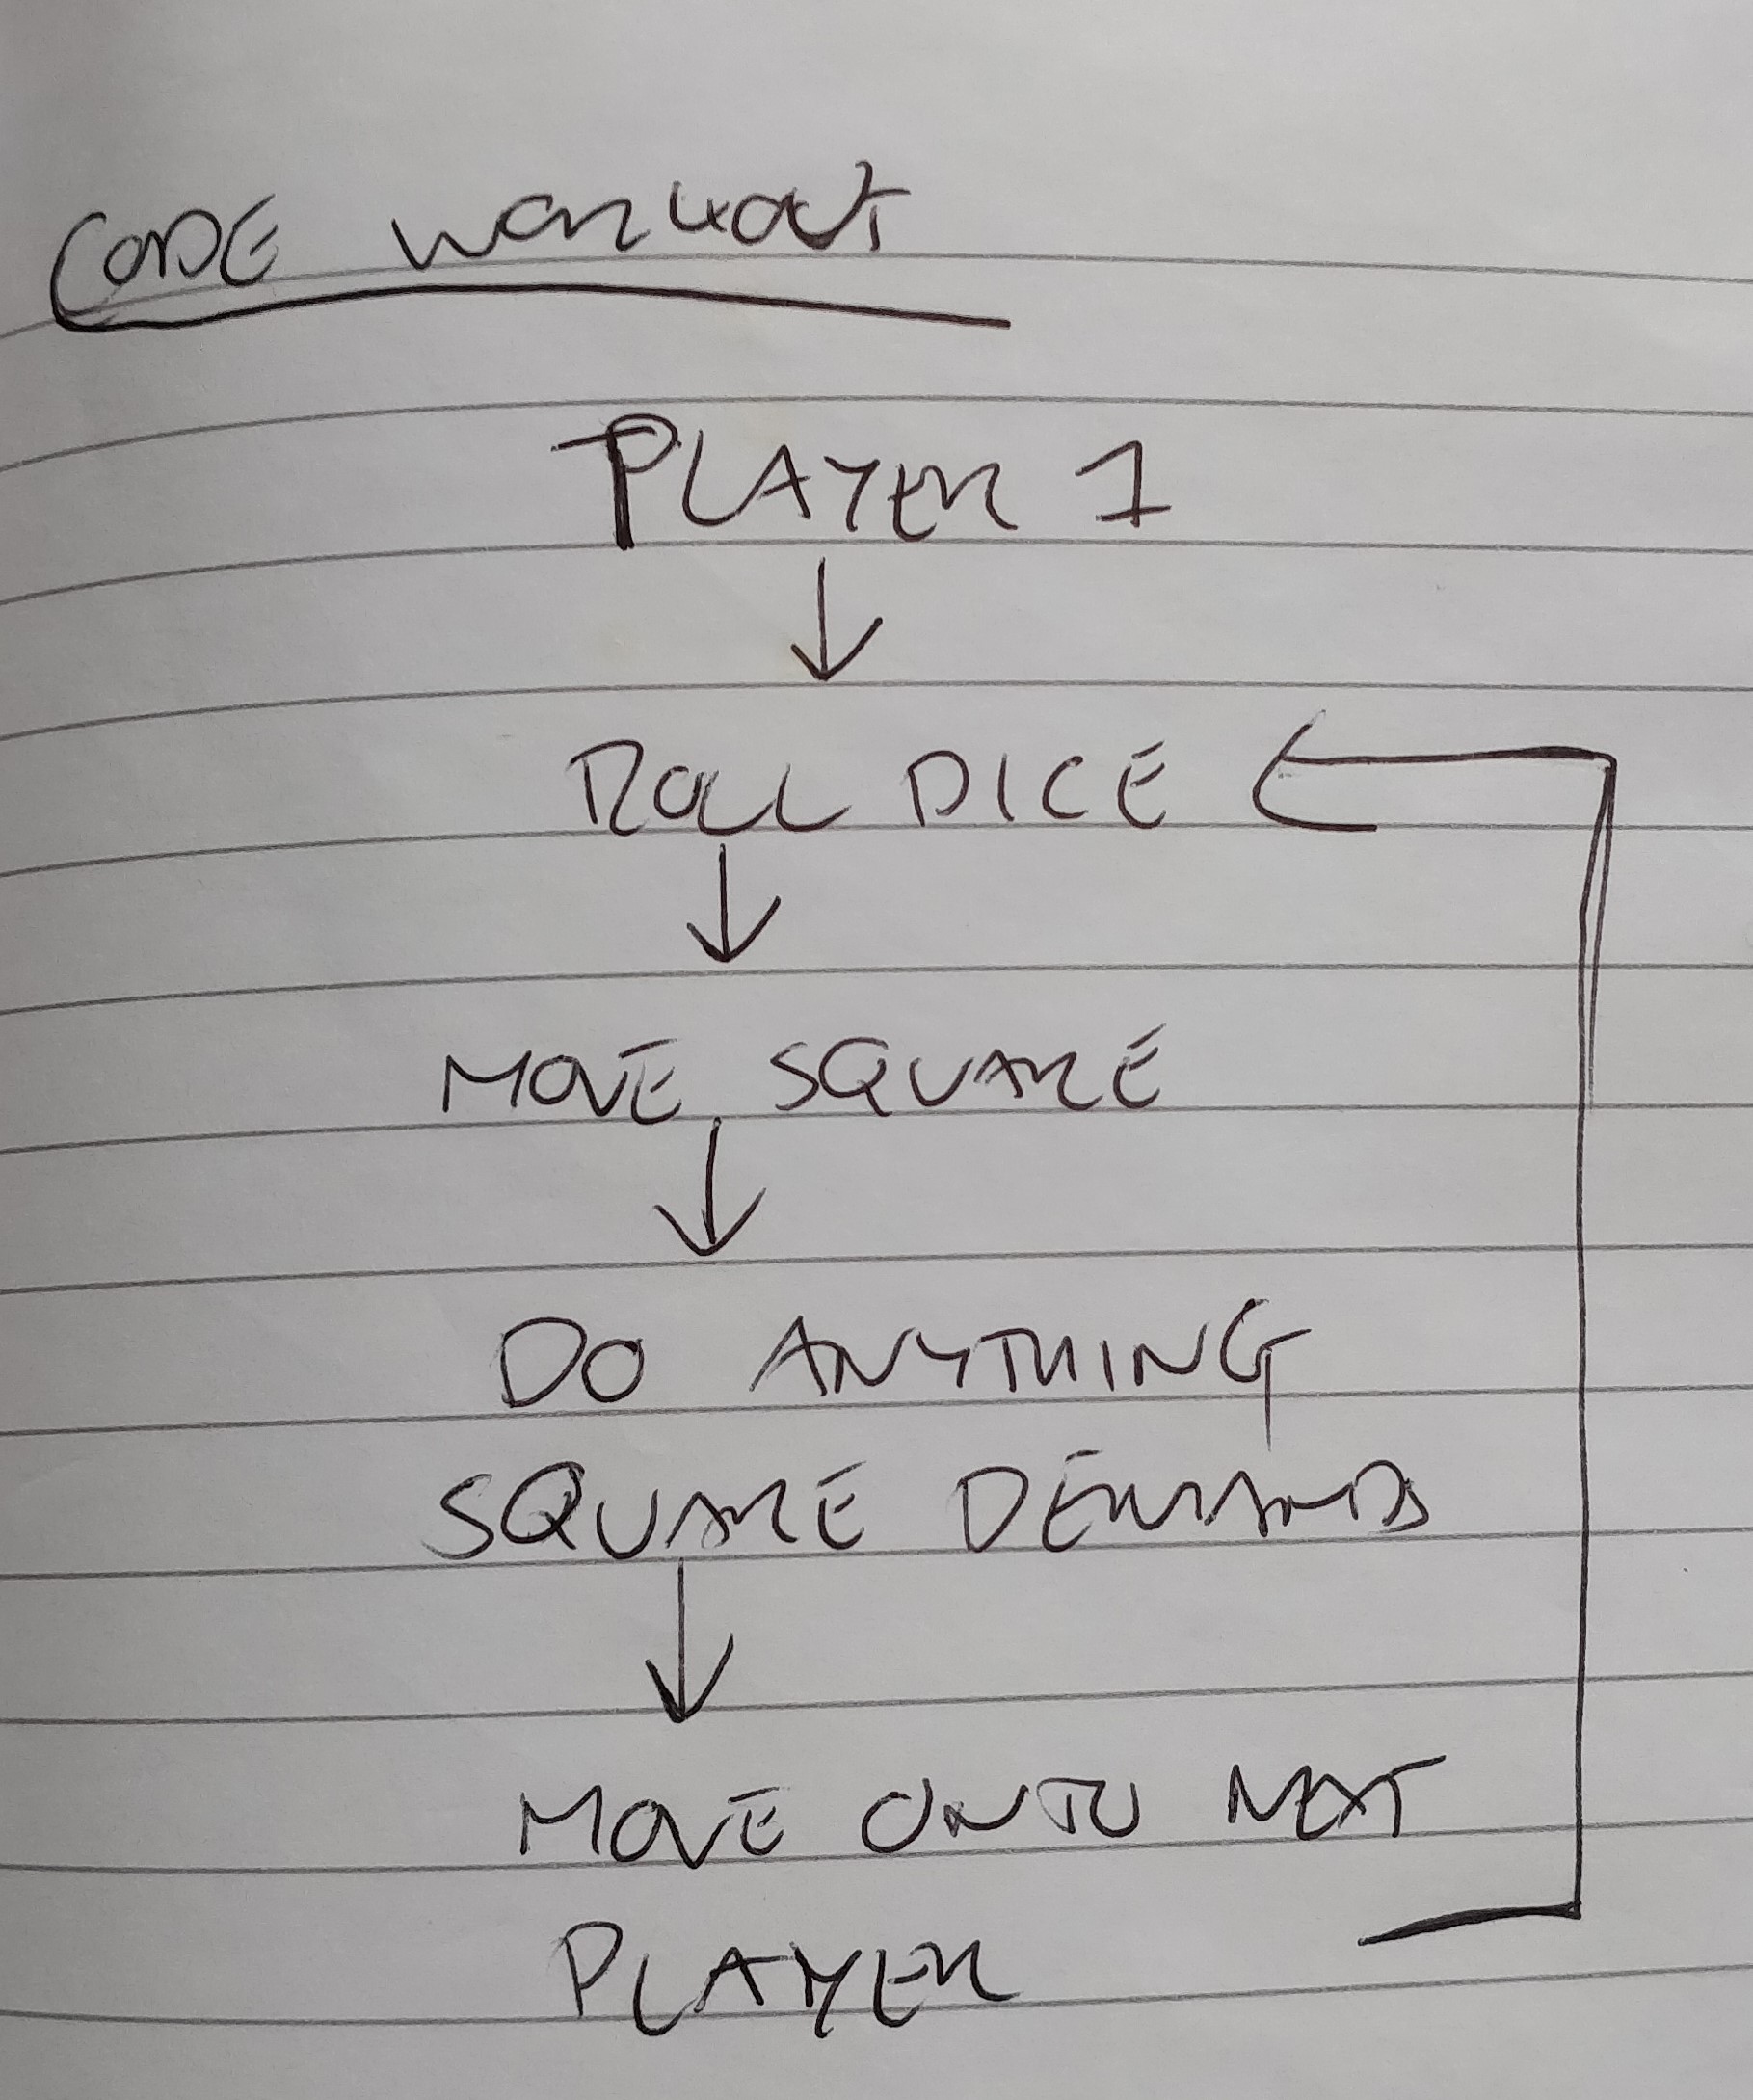 CODE WORKOUT
PLAYER 1
ROLL DICE
MOVE SQUARE
DO ANYTHING
SQUARE DEMANDS
MOVE ONTO NEXT
PLAYER